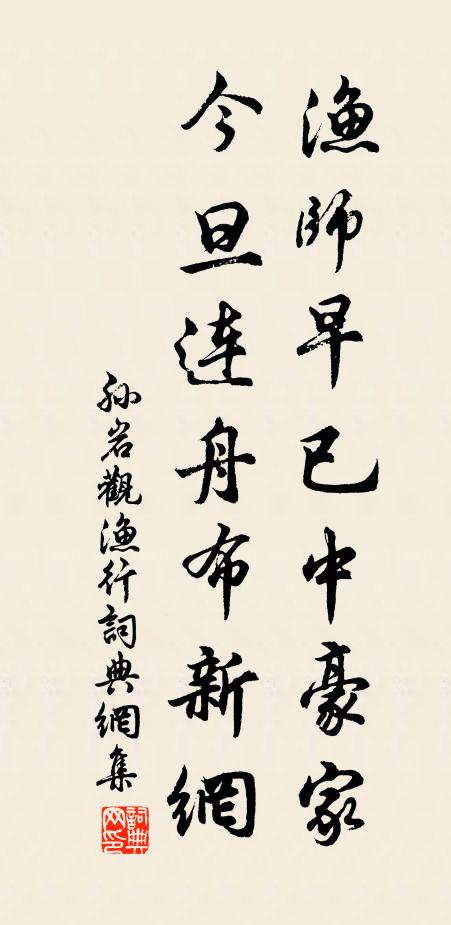 漁師早已中豪家
今旦連舟布新網
孫岩觀漁行詞典網集
詞典網印